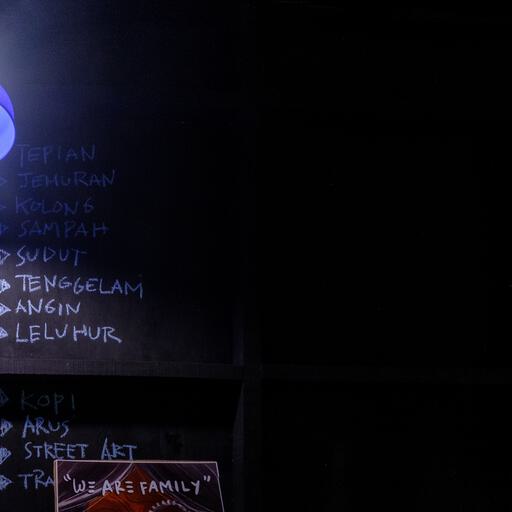 TEPIAN
JEMURAN
KOLONG
SAMPAH
SUDUT
TENGGELAM
ANGIN
LELUHUR
KOPI
ARUS
STREET ART
"WE ARE FAMILY"